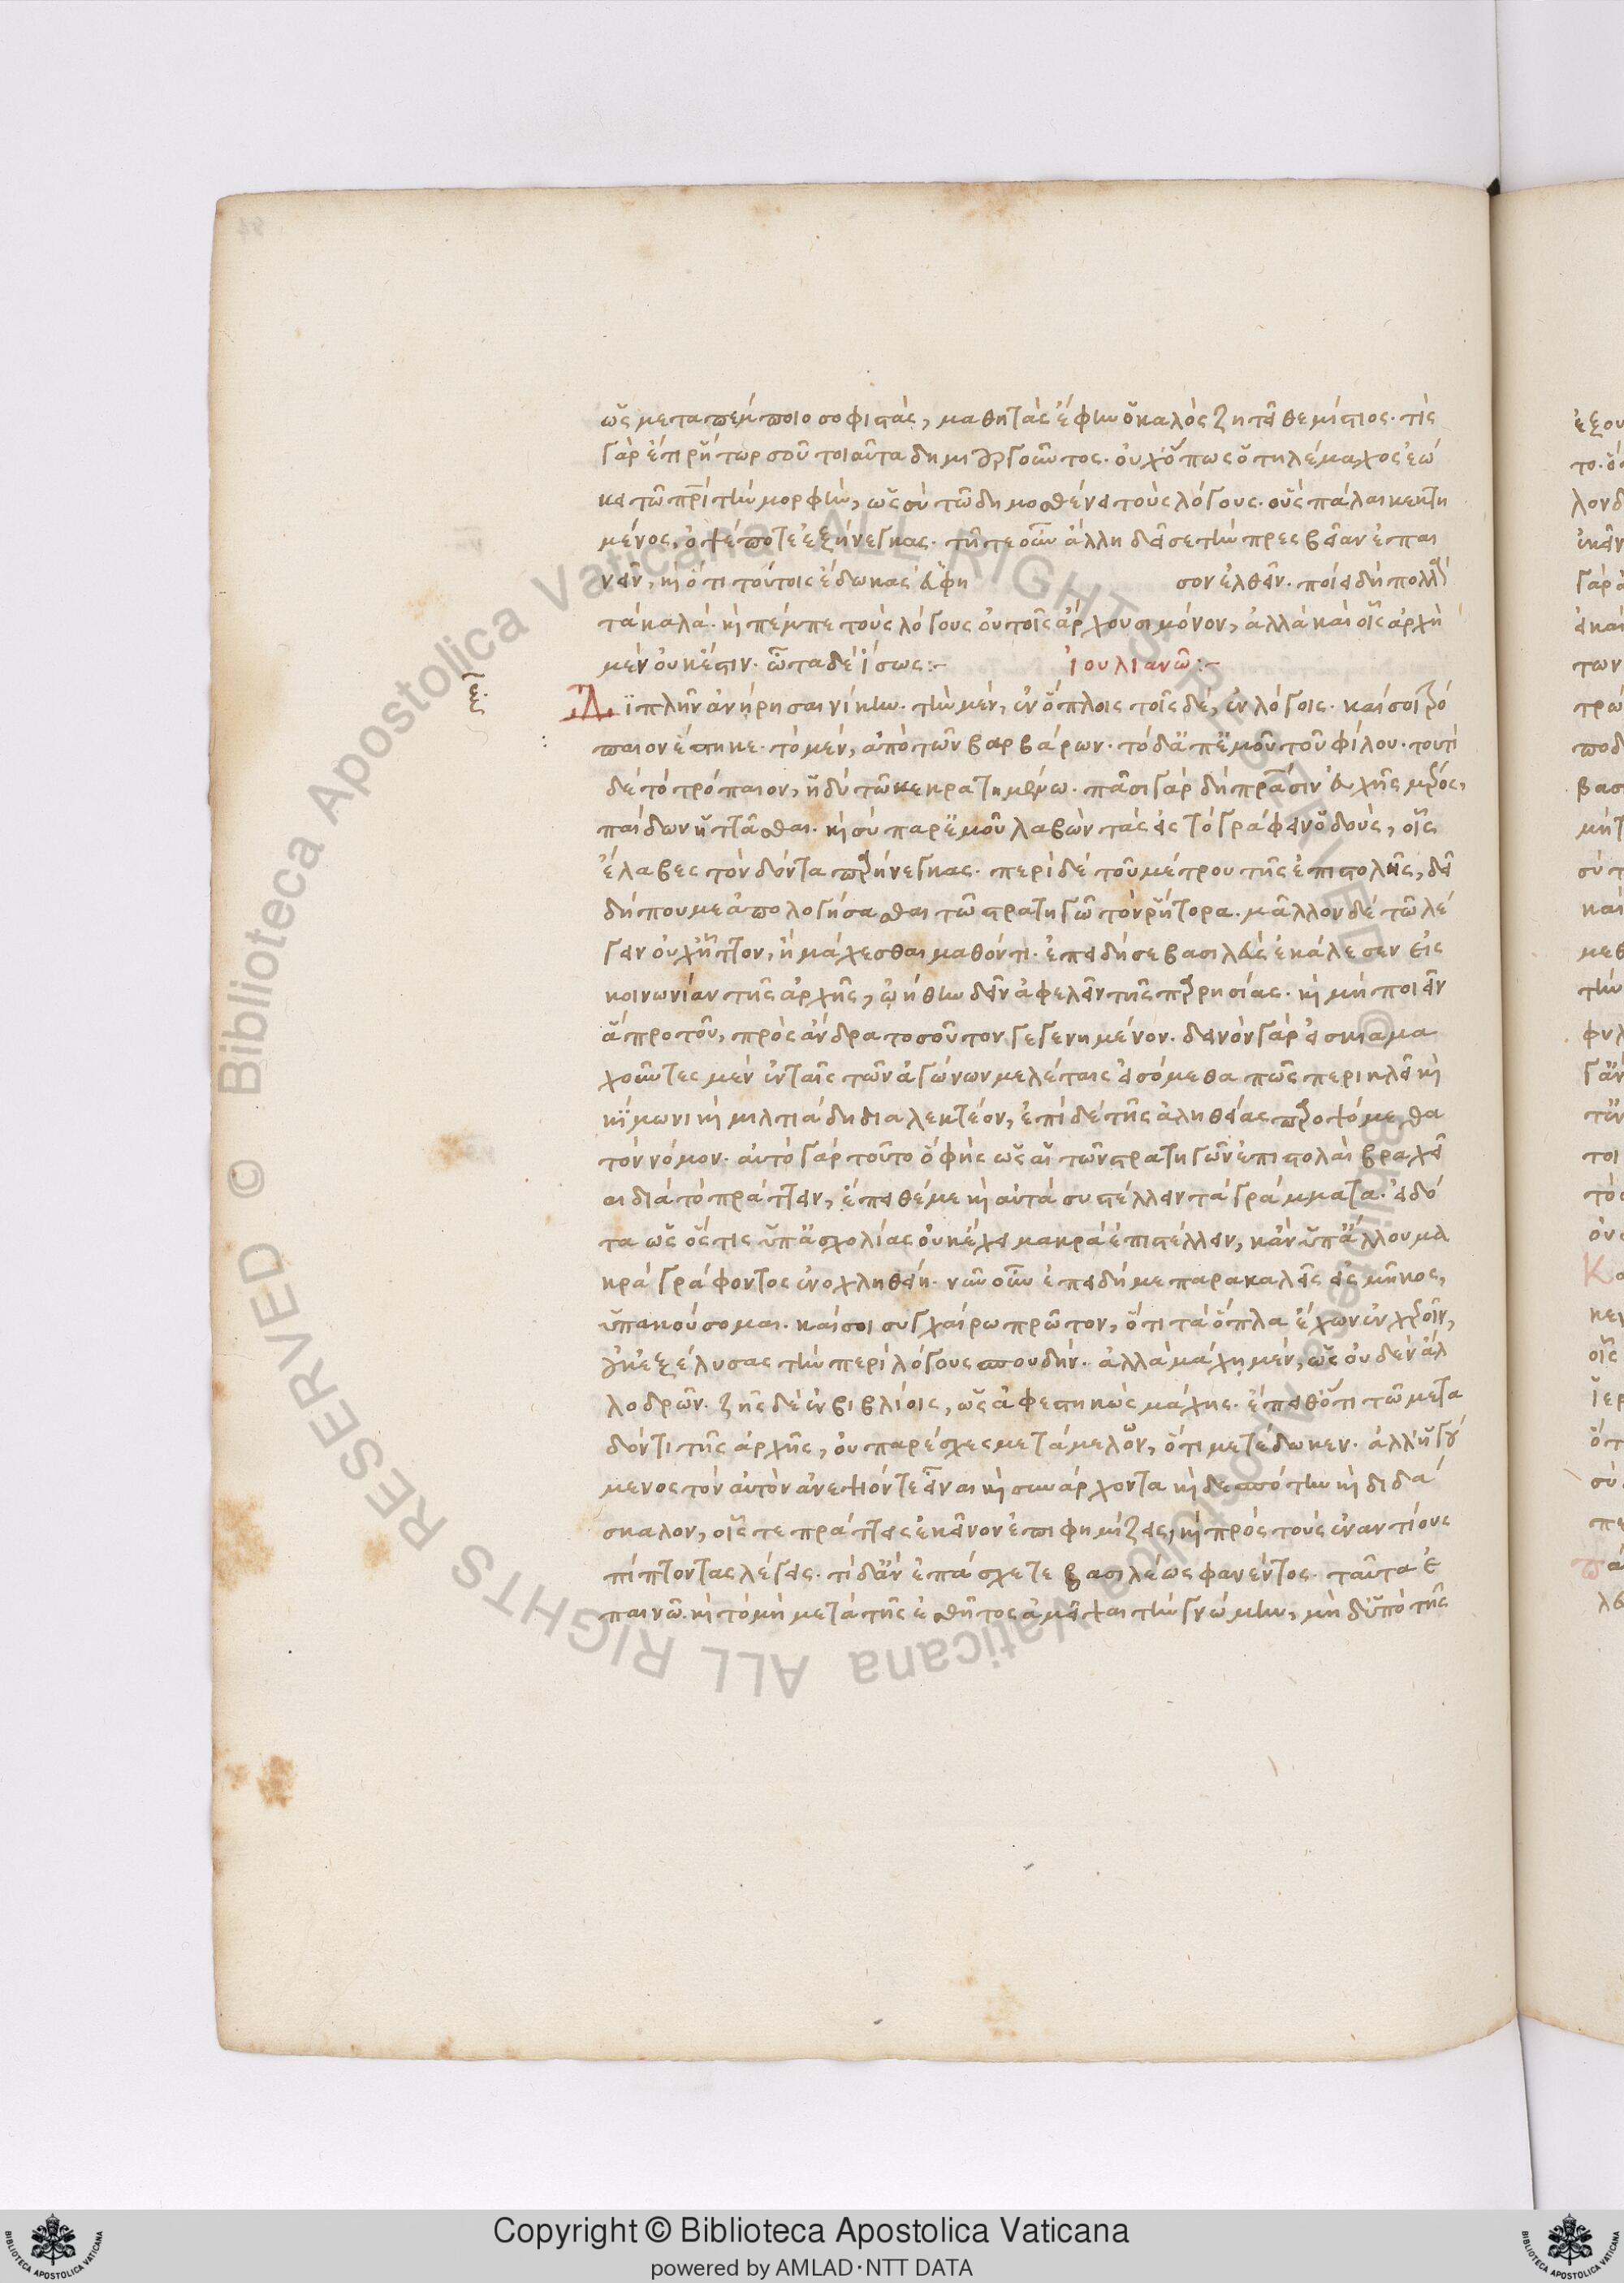 ὡς μεταπέμποιο σοφιστὰς, μαθητὰς ἔφην ὁ καλὸς ζητεῖ θεμίστιος. τίς
γὰρ ἔτι ῥήτωρ σοῦ τοιαῦτα δημιουργοῦντος. οὐχ ὅπως ὁ τηλέμαχος ἐῴ
κει τῷ πατρὶ τὴν μορφὴν, ὡς σὺ τῷ δημοσθένει τοὺς λόγους. οὓς πάλαι κεκτη
μένος, ὀψέ ποτε ἐξήνεγκας. τῇ τε οὖν ἄλλη δεῖ σε τὴν πρεσβείαν ἐπαι
νεῖν, καὶ ὅτι τούτοις ἔδωκας ἀφη σον ἐλθεῖν. ποίει δὴ πολλὰ
τὰ καλά. καὶ πέμπε τοὺς λόγους οὐ τοῖς ἄρχουσι μόνον, ἀλλὰ καὶ οἷς ἀρχὴ
μὲν οὐκ ἔστιν. ὦτα δὲ ἴσως:-
ἰουλιανῷ:-
ξ.
Διπλῆν ἀνήρησαι νίκην. τὴν μὲν, ἐν ὅπλοις τοῖς δὲ, ἐν λόγοις. καί σοι τρό
παιον ἕστηκε. τὸ μὲν, ἀπὸ τῶν βαρβάρων. τὸ δ' ἀπ' ἐμοῦ τοῦ φίλου. τουτὶ
δὲ τὸ τρόπαιον, ἡδὺ τῷ κεκρατημένῳ. πᾶσι γὰρ δὴ πατράσιν εὐχῆς μέρος,
παίδων ἡττᾶσθαι. καὶ σὺ παρ' ἐμοῦ λαβὼν τὰς εἰς τὸ γράφειν ὁδοὺς, οἷς
ἔλαβες τὸν δόντα παρήνεγκας. περὶ δὲ τοῦ μέτρου τῆς ἐπιστολῆς, δεῖ
δήπου με ἀπολογήσασθαι τῷ στρατηγῷ τὸν ῥήτορα. μᾶλλον δὲ τῷ λέ
γειν οὐχ ἧττον, ἢ μάχεσθαι μαθόντι. ἐπειδή σε βασιλεὺς ἐκάλεσεν εἰς
κοινωνίαν τῆς ἀρχῆς, ᾠήθην δεῖν ἀφελεῖν τῆς παρρησίας. καὶ μὴ ποιεῖν
ἃ προτοῦ, πρὸς ἄνδρα τοσοῦτον γεγενημένον. δεινὸν γὰρ εἰ σκιαμα
χοῦντες μὲν ἐν ταῖς τῶν ἀγώνων μελέταις εἰσόμεθα πῶς περικλεῖ καὶ
κίμωνι καὶ μιλτιάδη διαλεκτέον, ἐπὶ δὲ τῆς ἀληθείας παροψόμεθα
τὸν νόμον. αὐτὸ γὰρ τοῦτο ὃ φῂς ὡς αἱ τῶν στρατηγῶν ἐπιστολαὶ βραχεῖ
αι διὰ τὸ πράττειν, ἔπειθέ με καὶ αὐτὰ συστέλλειν τὰ γράμματα. εἰδό
τα ὡς ὅς τις ὑπ' ἀσχολίας οὐκ ἔχει μακρὰ ἐπιστέλλειν, κἂν ὑπ' ἄλλου μα
κρὰ γράφοντος ἐνοχληθείη. νῦν οὖν ἐπειδή με παρακαλεῖς εἰς μῆκος,
ὑπακούσομαι. καί σοι συγχαίρω πρῶτον, ὅτι τὰ ὅπλα ἔχων ἐν χεροῖν,
οὐκ ἐξέλυσας τὴν περὶ λόγους σπουδήν. ἀλλὰ μάχῃ μὲν, ὡς οὐδὲν ἄλ
λο δρῶν. ζῇς δὲ ἐν βιβλίοις, ὡς ἀφεστηκὼς μάχης. ἔπειθ' ὅτι τῷ μετα
δόντι τῆς ἀρχῆς, οὐ παρέσχες μεταμέλον, ὅτι μετέδωκεν. ἀλλ' ἡγού
μενος τὸν αὐτὸν ἀνεψιόν τε εἶναι καὶ συνάρχοντα καὶ δεσπότην καὶ διδά
σκαλον, οἷς τε πράττεις ἐκεῖνον ἐπιφημίζεις, καὶ πρὸς τοὺς ἐναντίους
πίπτοντας λέγεις. τί δ' ἂν ἐπάσχετε βασιλέως φανέντος. ταῦτα ἐ
παινῶ. καὶ τὸ μὴ μετὰ τῆς ἐσθῆτος ἀμεῖψαι τὴν γνώμην, μὴ δ' ὑπὸ τῆς
© Biblioteca Apostolica Vaticana ALL RIGHTS RESERVED
Copyright © Biblioteca Apostolica Vaticana
powered by AMLAD·NTT DATA